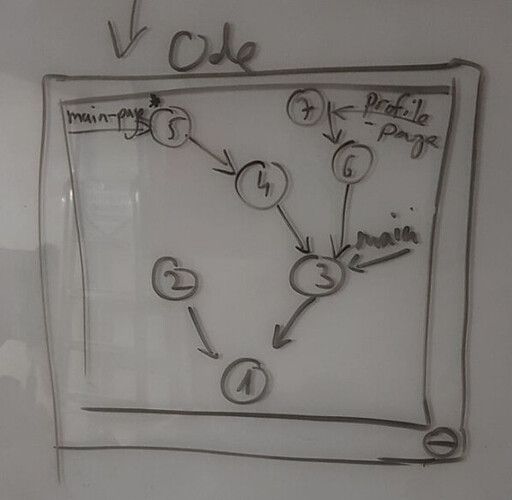 Ode
main-page *
5
7
profile
-page
6
4
main
3
2
1